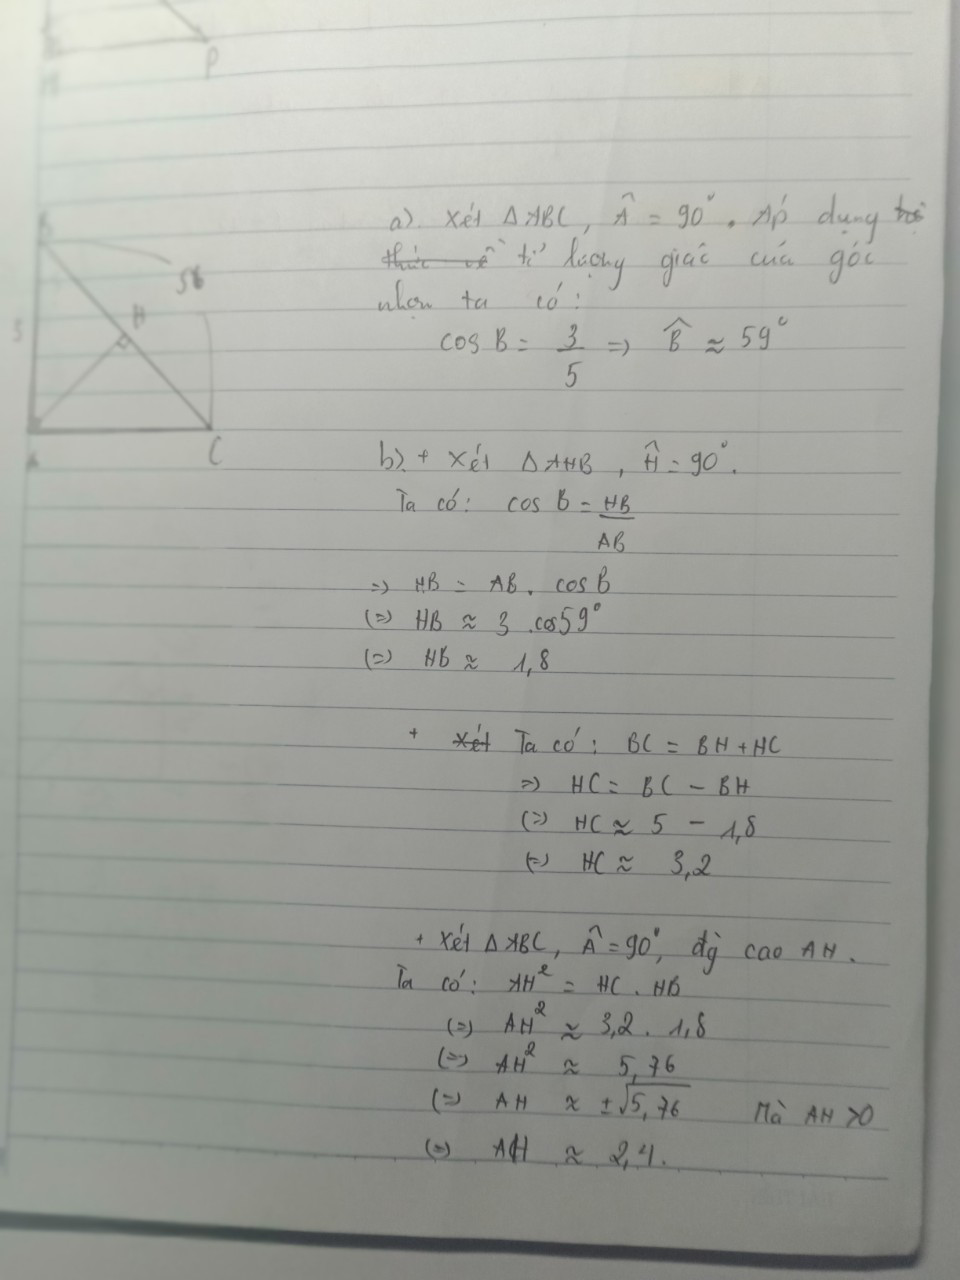 P
a). Xét ΔABC, Â = 90°. Áp dụng
thức về tỉ lượng giác của góc
nhọn ta có:
cos B = 3/5 => B̂ ≈ 59°
H
A
C
b). + Xét ΔAHB, Ĥ = 90°.
Ta có: cos B = HB/AB
=> HB = AB. cos B
(=) HB ≈ 3 .cos59°
(=) HB ≈ 1,8
+ Xét Ta có: BC = BH + HC
=> HC = BC - BH
(=) HC ≈ 5 - 1,8
(=) HC ≈ 3,2
+ Xét ΔABC, Â = 90°, đg cao AH.
Ta có: AH² = HC . HB
(=) AH² ≈ 3,2. 1,8
(=) AH² ≈ 5,76
(=) AH ≈ ±√5,76 Mà AH >0
(=) AH ≈ 2,4.